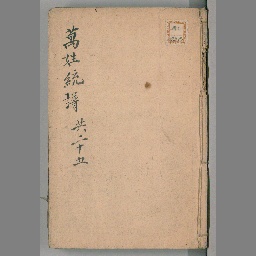 萬姓統譜 共二十五